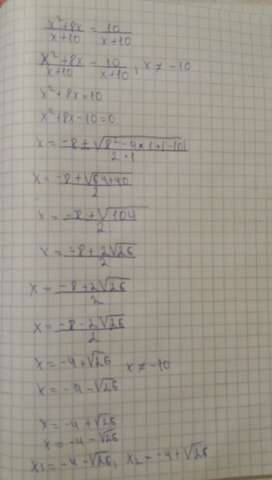 x²+8x/x+10 = 10/x+10
x²+8x/x+10 = 10/x+10, x ≠ -10
x²+8x=10
x²+8x-10=0
x = -8±√8²-4×1×(-10)/2×1
x = -8±√64+40/2
x = -8±√104/2
x = -8±2√26/2
x = -8+2√26/2
x = -8-2√26/2
x = -4+√26 x ≠ -10
x = -4-√26
x = -4+√26
x = -4-√26
x₁ = -4-√26, x₂ = -4+√26